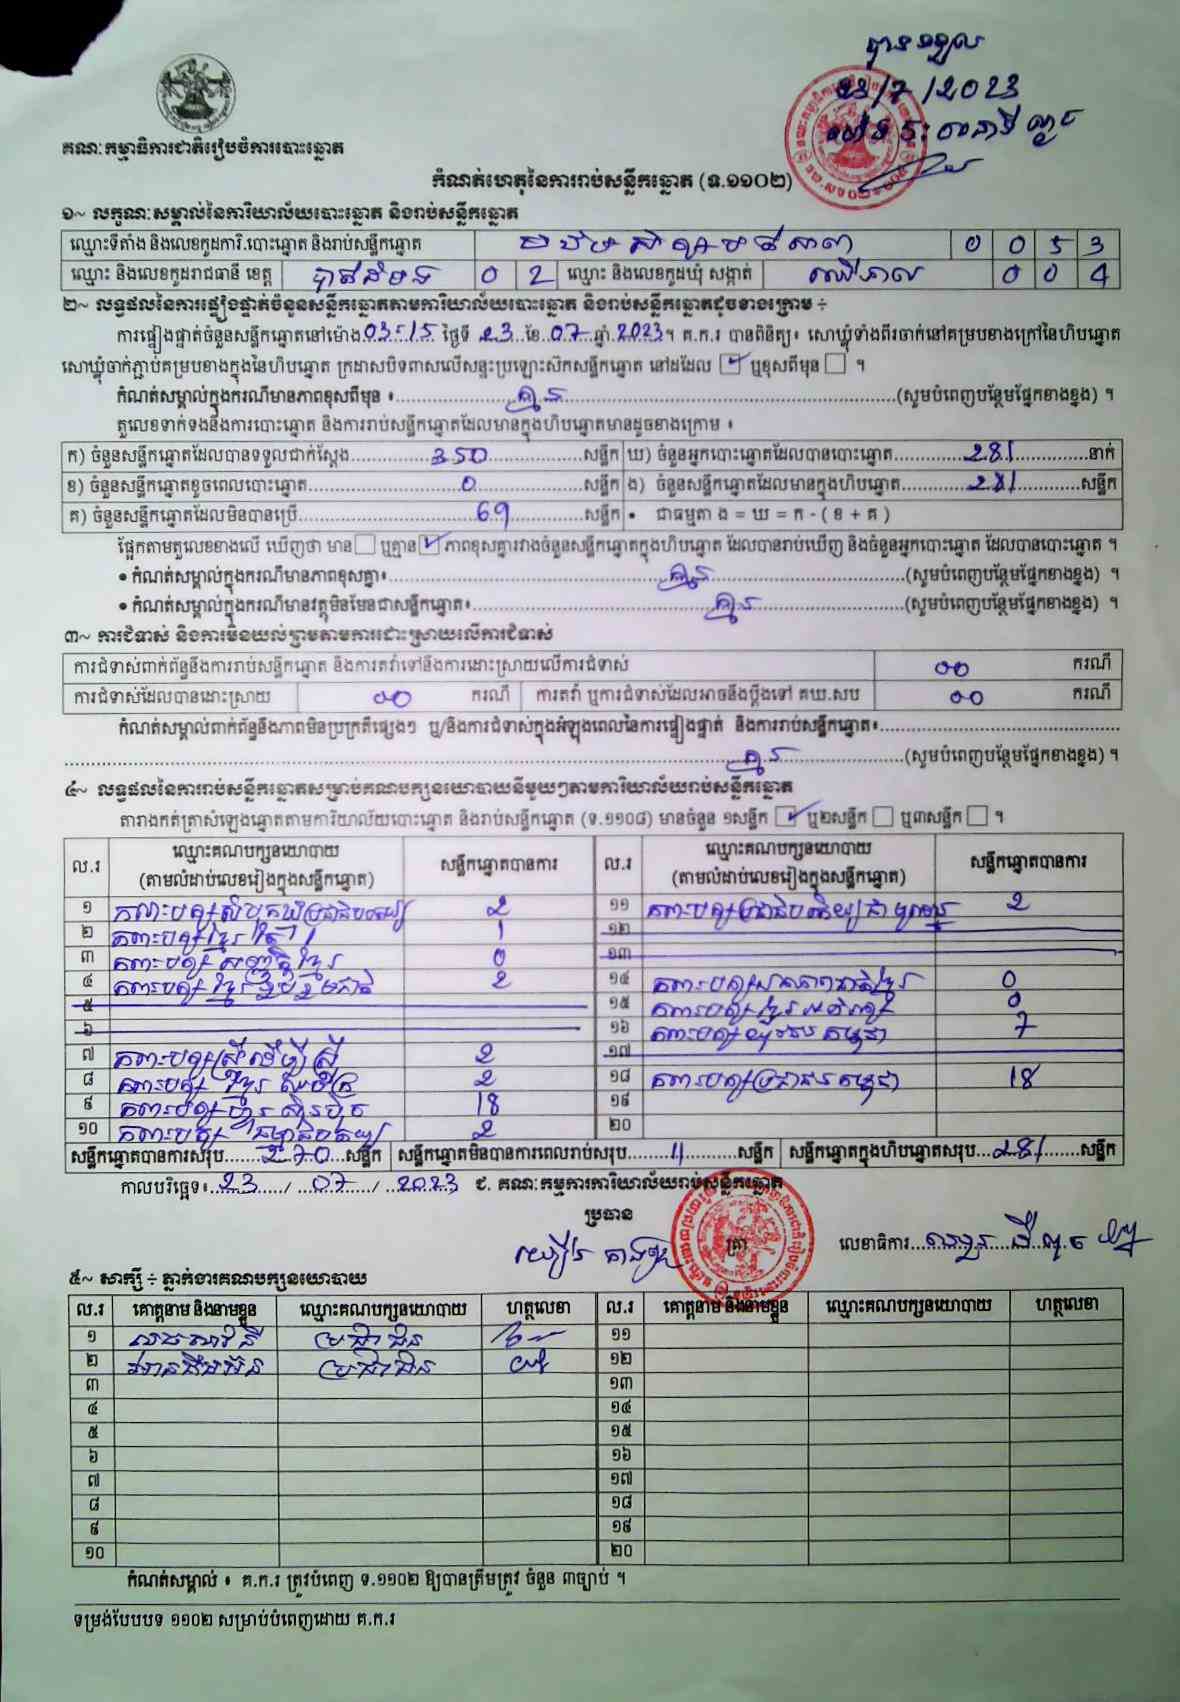 បានទទួល
23/7/2023
គណៈកម្មាធិការជាតិរៀបចំការបោះឆ្នោត
កំណត់ហេតុនៃការរាប់សន្លឹកឆ្នោត (ទ.១១០២)
១~ លក្ខណៈសម្គាល់នៃការិយាល័យបោះឆ្នោត និងរាប់សន្លឹកឆ្នោត
ឈ្មោះទីតាំង និងលេខកូដការិ.បោះឆ្នោត និងរាប់សន្លឹកឆ្នោត 0 0 5 3
ឈ្មោះ និងលេខកូដរាជធានី ខេត្ត បាត់ដំបង 0 2 ឈ្មោះ និងលេខកូដឃុំ សង្កាត់ 0 0 4
២~ លទ្ធផលនៃការផ្ទៀងផ្ទាត់ចំនួនសន្លឹកឆ្នោតតាមការិយាល័យបោះឆ្នោត និងរាប់សន្លឹកឆ្នោតដូចខាងក្រោម ÷
ការផ្ទៀងផ្ទាត់ចំនួនសន្លឹកឆ្នោតនៅម៉ោង 03:15 ថ្ងៃទី 23 ខែ 07 ឆ្នាំ 2023។ គ.ក.រ បានពិនិត្យ៖ សោឃ្លុំទាំងពីរចាក់នៅគម្របខាងក្រៅនៃហិបឆ្នោត
សោឃ្លុំចាក់ភ្ជាប់គម្របខាងក្នុងនៃហិបឆ្នោត ក្រដាសបិទពាសលើសន្ទះប្រឡោះស៊កសន្លឹកឆ្នោត នៅដដែល ☑ ឬខុសពីមុន ☐ ។
កំណត់សម្គាល់ក្នុងករណីមានភាពខុសពីមុន ៖ គ្មាន (សូមបំពេញបន្ថែមផ្នែកខាងខ្នង) ។
តួលេខទាក់ទងនឹងការបោះឆ្នោត និងការរាប់សន្លឹកឆ្នោតដែលមានក្នុងហិបឆ្នោតមានដូចខាងក្រោម ៖
ក) ចំនួនសន្លឹកឆ្នោតដែលបានទទួលជាក់ស្តែង 350 សន្លឹក ឃ) ចំនួនអ្នកបោះឆ្នោតដែលបានបោះឆ្នោត 281 នាក់
ខ) ចំនួនសន្លឹកឆ្នោតខូចពេលបោះឆ្នោត 0 សន្លឹក ង) ចំនួនសន្លឹកឆ្នោតដែលមានក្នុងហិបឆ្នោត 281 សន្លឹក
គ) ចំនួនសន្លឹកឆ្នោតដែលមិនបានប្រើ 69 សន្លឹក • ជាធម្មតា ង = ឃ = ក - ( ខ + គ )
ផ្អែកតាមតួលេខខាងលើ ឃើញថា មាន ☐ ឬគ្មាន ☑ ភាពខុសគ្នារវាងចំនួនសន្លឹកឆ្នោតក្នុងហិបឆ្នោត ដែលបានរាប់ឃើញ និងចំនួនអ្នកបោះឆ្នោត ដែលបានបោះឆ្នោត ។
• កំណត់សម្គាល់ក្នុងករណីមានភាពខុសគ្នា៖ គ្មាន (សូមបំពេញបន្ថែមផ្នែកខាងខ្នង) ។
• កំណត់សម្គាល់ក្នុងករណីមានវត្ថុមិនមែនជាសន្លឹកឆ្នោត៖ គ្មាន (សូមបំពេញបន្ថែមផ្នែកខាងខ្នង) ។
៣~ ការជំទាស់ និងការមិនយល់ព្រមតាមការដោះស្រាយលើការជំទាស់
ការជំទាស់ពាក់ព័ន្ធនឹងការរាប់សន្លឹកឆ្នោត និងការតវ៉ាទៅនឹងការដោះស្រាយលើការជំទាស់ 00 ករណី
ការជំទាស់ដែលបានដោះស្រាយ 00 ករណី ការតវ៉ា ឬការជំទាស់ដែលអាចនឹងប្តឹងទៅ គឃ.សប 00 ករណី
កំណត់សម្គាល់ពាក់ព័ន្ធនឹងភាពមិនប្រក្រតីផ្សេងៗ ឬ/និងការជំទាស់ក្នុងអំឡុងពេលនៃការផ្ទៀងផ្ទាត់ និងការរាប់សន្លឹកឆ្នោត៖
គ្មាន (សូមបំពេញបន្ថែមផ្នែកខាងខ្នង) ។
៤~ លទ្ធផលនៃការរាប់សន្លឹកឆ្នោតសម្រាប់គណបក្សនយោបាយនីមួយៗតាមការិយាល័យរាប់សន្លឹកឆ្នោត
តារាងកត់ត្រាសំឡេងឆ្នោតតាមការិយាល័យបោះឆ្នោត និងរាប់សន្លឹកឆ្នោត (ទ.១១០៨) មានចំនួន ១សន្លឹក ☑ ឬ២សន្លឹក ☐ ឬ៣សន្លឹក ☐ ។
ល.រ ឈ្មោះគណបក្សនយោបាយ (តាមលំដាប់លេខរៀងក្នុងសន្លឹកឆ្នោត) សន្លឹកឆ្នោតបានការ ល.រ ឈ្មោះគណបក្សនយោបាយ (តាមលំដាប់លេខរៀងក្នុងសន្លឹកឆ្នោត) សន្លឹកឆ្នោតបានការ
១ 2 ១១ 2
២ 1 ១២
៣ 0 ១៣
៤ គណបក្សខ្មែររួបរួមជាតិ 2 ១៤ 0
៥ ១៥ 0
៦ ១៦ គណបក្សយុវជនកម្ពុជា 7
៧ គណបក្សស្រីដើម្បីស្រី 2 ១៧
៨ 2 ១៨ គណបក្សប្រជាជនកម្ពុជា 18
៩ គណបក្សហ៊្វុនស៊ិនប៉ិច 18 ១៩
១០ 2 ២០
សន្លឹកឆ្នោតបានការសរុប 270 សន្លឹក សន្លឹកឆ្នោតមិនបានការពេលរាប់សរុប 11 សន្លឹក សន្លឹកឆ្នោតក្នុងហិបឆ្នោតសរុប 281 សន្លឹក
កាលបរិច្ឆេទ៖ 23 / 07 / 2023 ជ. គណៈកម្មការការិយាល័យរាប់សន្លឹកឆ្នោត
ប្រធាន
ត្រា លេខាធិការ
៥~ សាក្សី ÷ ភ្នាក់ងារគណបក្សនយោបាយ
ល.រ គោត្តនាម និងនាមខ្លួន ឈ្មោះគណបក្សនយោបាយ ហត្ថលេខា ល.រ គោត្តនាម និងនាមខ្លួន ឈ្មោះគណបក្សនយោបាយ ហត្ថលេខា
១ ប្រជាជន ១១
២ ប្រជាជន ១២
៣ ១៣
៤ ១៤
៥ ១៥
៦ ១៦
៧ ១៧
៨ ១៨
៩ ១៩
១០ ២០
កំណត់សម្គាល់ ៖ គ.ក.រ ត្រូវបំពេញ ទ.១១០២ ឱ្យបានត្រឹមត្រូវ ចំនួន ៣ច្បាប់ ។
ទម្រង់បែបបទ ១១០២ សម្រាប់បំពេញដោយ គ.ក.រ